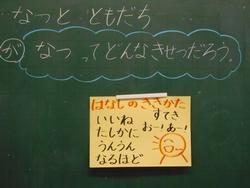 なつと ともだち
が なつってどんなきせつだろう。
はなしのききかた
いいね
たしかに
うんうん
なるほど
すてき
おー！あー！